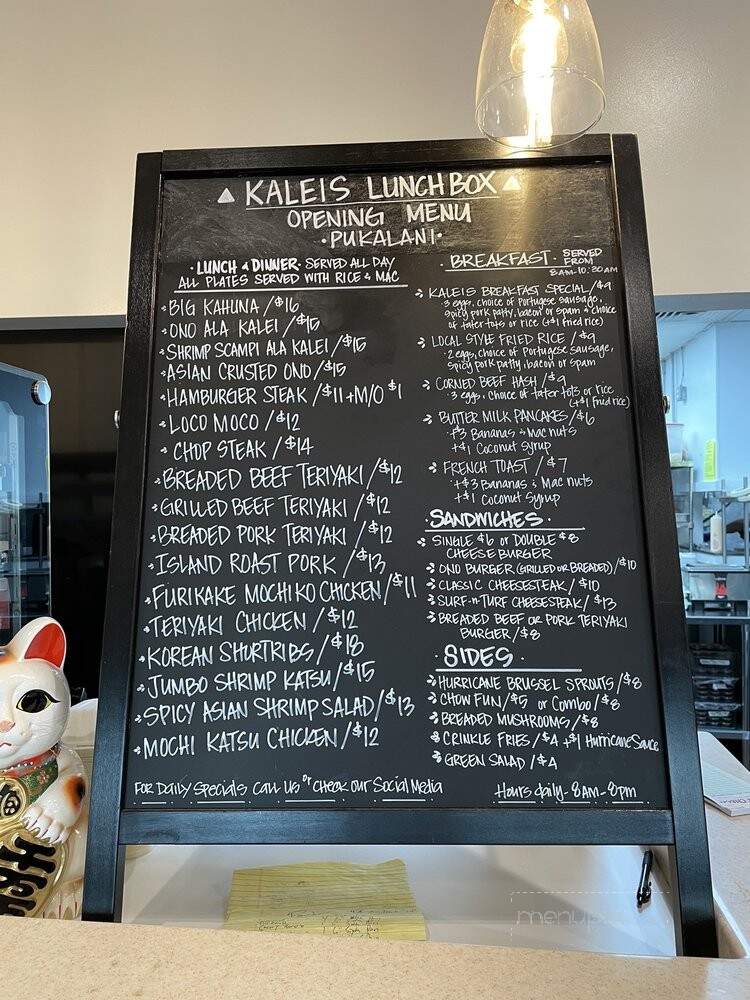 KALEIS LUNCHBOX
OPENING MENU
· PUKALANI ·
· LUNCH & DINNER · SERVED ALL DAY
ALL PLATES SERVED WITH RICE & MAC
BIG KAHUNA / $16
ONO ALA KALEI / $15
SHRIMP SCAMPI ALA KALEI / $15
ASIAN CRUSTED ONO / $15
HAMBURGER STEAK / $11 + M/O $1
LOCO MOCO / $12
CHOP STEAK / $14
BREADED BEEF TERIYAKI / $12
GRILLED BEEF TERIYAKI / $12
BREADED PORK TERIYAKI / $12
ISLAND ROAST PORK / $13
FURIKAKE MOCHIKO CHICKEN / $11
TERIYAKI CHICKEN / $12
KOREAN SHORTRIBS / $18
JUMBO SHRIMP KATSU / $15
SPICY ASIAN SHRIMP SALAD / $13
MOCHI KATSU CHICKEN / $12
· BREAKFAST · SERVED FROM
8AM-10:30AM
KALEIS BREAKFAST SPECIAL / $9
· 3 eggs, choice of Portugese sausage,
spicy pork patty, bacon or spam & choice
of tater tots or rice (+$1 fried rice)
LOCAL STYLE FRIED RICE / $9
· 2 eggs, choice of Portugese sausage,
spicy pork patty, bacon or spam
CORNED BEEF HASH / $9
· 3 eggs, choice of tater tots or rice
(+$1 fried rice)
BUTTER MILK PANCAKES / $6
· +$3 Bananas & Mac nuts
+$1 Coconut syrup
FRENCH TOAST / $7
· +$3 Bananas & Mac nuts
+$1 Coconut Syrup
· SANDWICHES ·
SINGLE $6 or DOUBLE $8
CHEESE BURGER
ONO BURGER (GRILLED OR BREADED) / $10
CLASSIC CHEESESTEAK / $10
SURF-n-TURF CHEESESTEAK / $13
BREADED BEEF OR PORK TERIYAKI
BURGER / $8
· SIDES ·
HURRICANE BRUSSEL SPROUTS / $8
CHOW FUN / $5 or Combo / $8
BREADED MUSHROOMS / $8
CRINKLE FRIES / $4 +$1 Hurricane Sauce
GREEN SALAD / $4
For Daily Specials Call Us or Check our Social Media
Hours daily - 8am - 8pm